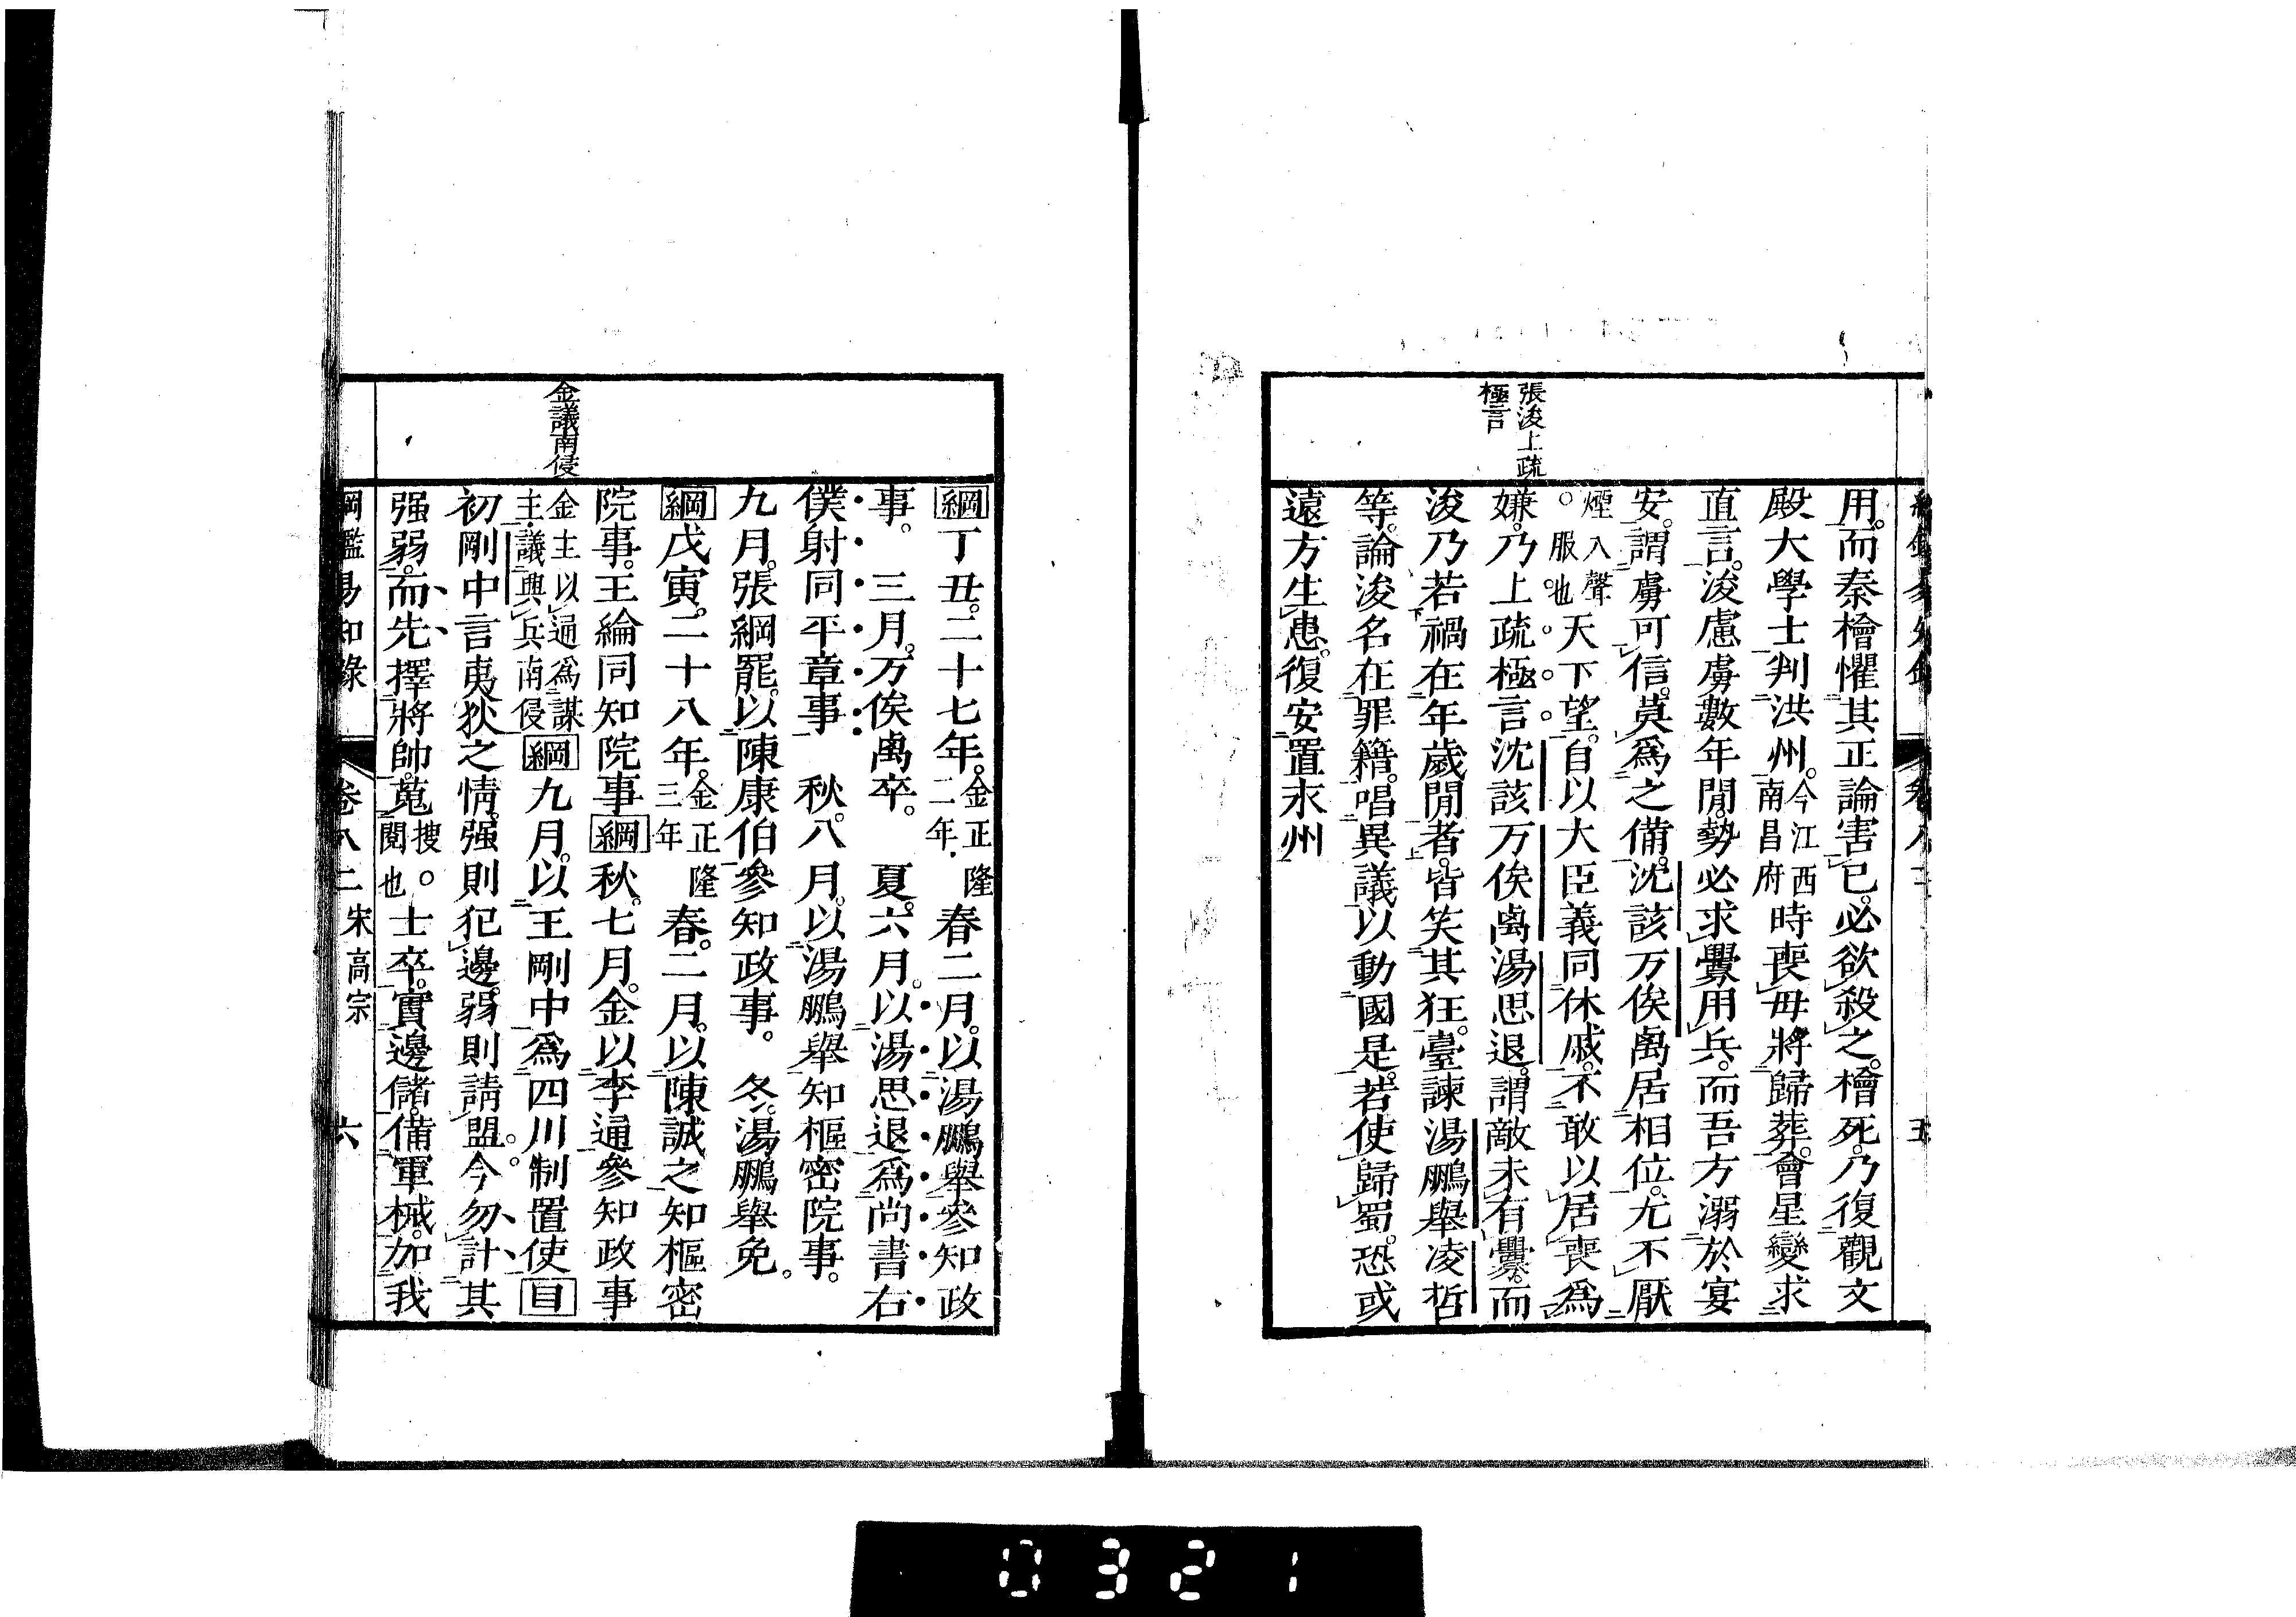 張浚上疏
極言
用。而秦檜懼其正論害己。必欲殺之。檜死。乃復觀文
殿大學士判洪州。今江西南昌府時喪母將歸葬。會星變求
直言。浚慮虜數年間。勢必求釁用兵。而吾方溺於宴
安。謂虜可信。莫爲之備。沈該万俟卨居相位。尤不厭
煙入聲。服也。天下望。自以大臣義同休戚。不敢以居喪爲
嫌。乃上疏極言沈該万俟卨湯思退。謂敵未有釁。而
浚乃若禍在年歲閒者。皆笑其狂。臺諫湯鵬舉凌哲
等。論浚名在罪籍。唱異議以動國是。若使歸蜀。恐或
遠方生患。復安置永州
金議南侵
綱丁丑。二十七年。金正隆二年春二月。以湯鵬舉參知政
事。三月。万俟卨卒。夏。六月。以湯思退爲尚書右
僕射同平章事 秋。八月。以湯鵬舉知樞密院事。
九月。張綱罷。以陳康伯參知政事。冬。湯鵬舉免。
綱戊寅。二十八年。金正隆三年春。二月。以陳誠之知樞密
院事。王綸同知院事綱秋。七月。金以李通參知政事
金主以通爲謀主。議興兵南侵綱九月。以王剛中爲四川制置使目
初剛中言夷狄之情。强則犯邊。弱則請盟。今勿計其
强弱。而先擇將帥。蒐搜。閱也士卒。實邊儲。備軍械。加我
綱鑑易知錄 卷八二 宋高宗 六
0321